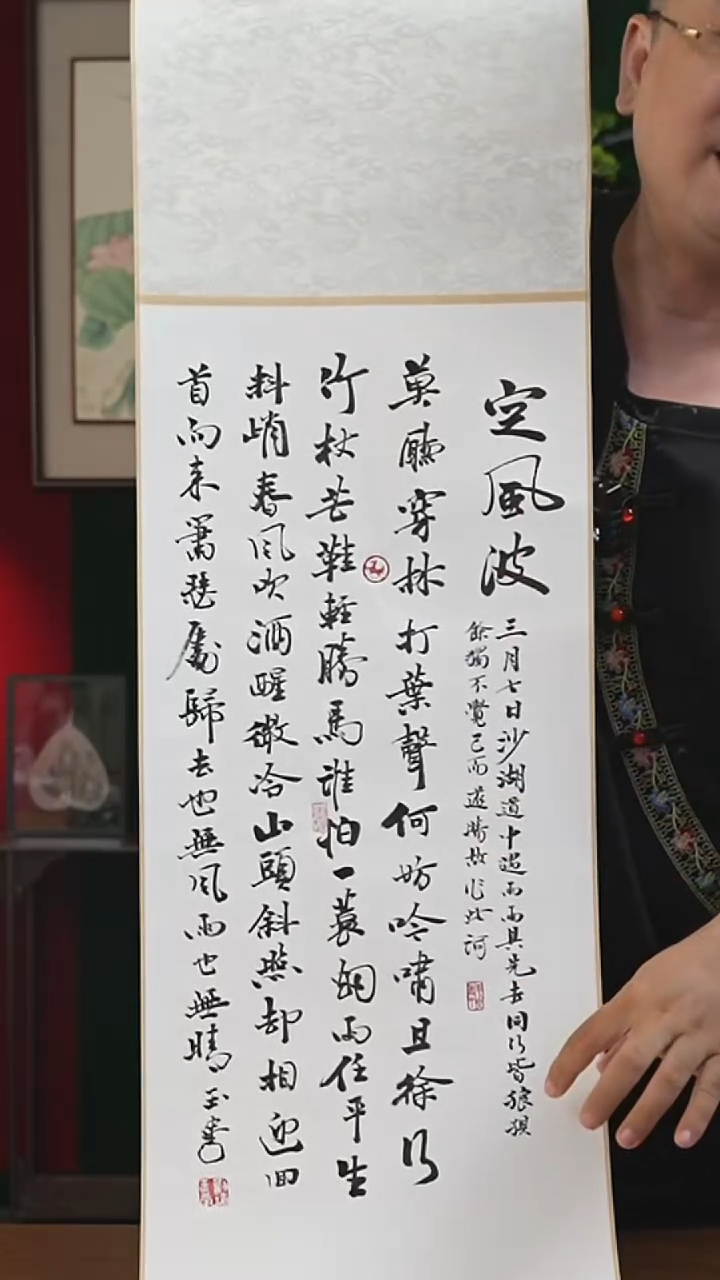 定風波
三月七日沙湖道中遇雨雨具先去同行皆狼狽
餘獨不覺已而遂晴故作此詞
莫聽穿林打葉聲何妨吟嘯且徐行
竹杖芒鞋輕勝馬誰怕一蓑烟雨任平生
料峭春風吹酒醒微冷山頭斜照却相迎回
首向來蕭瑟處歸去也無風雨也無晴